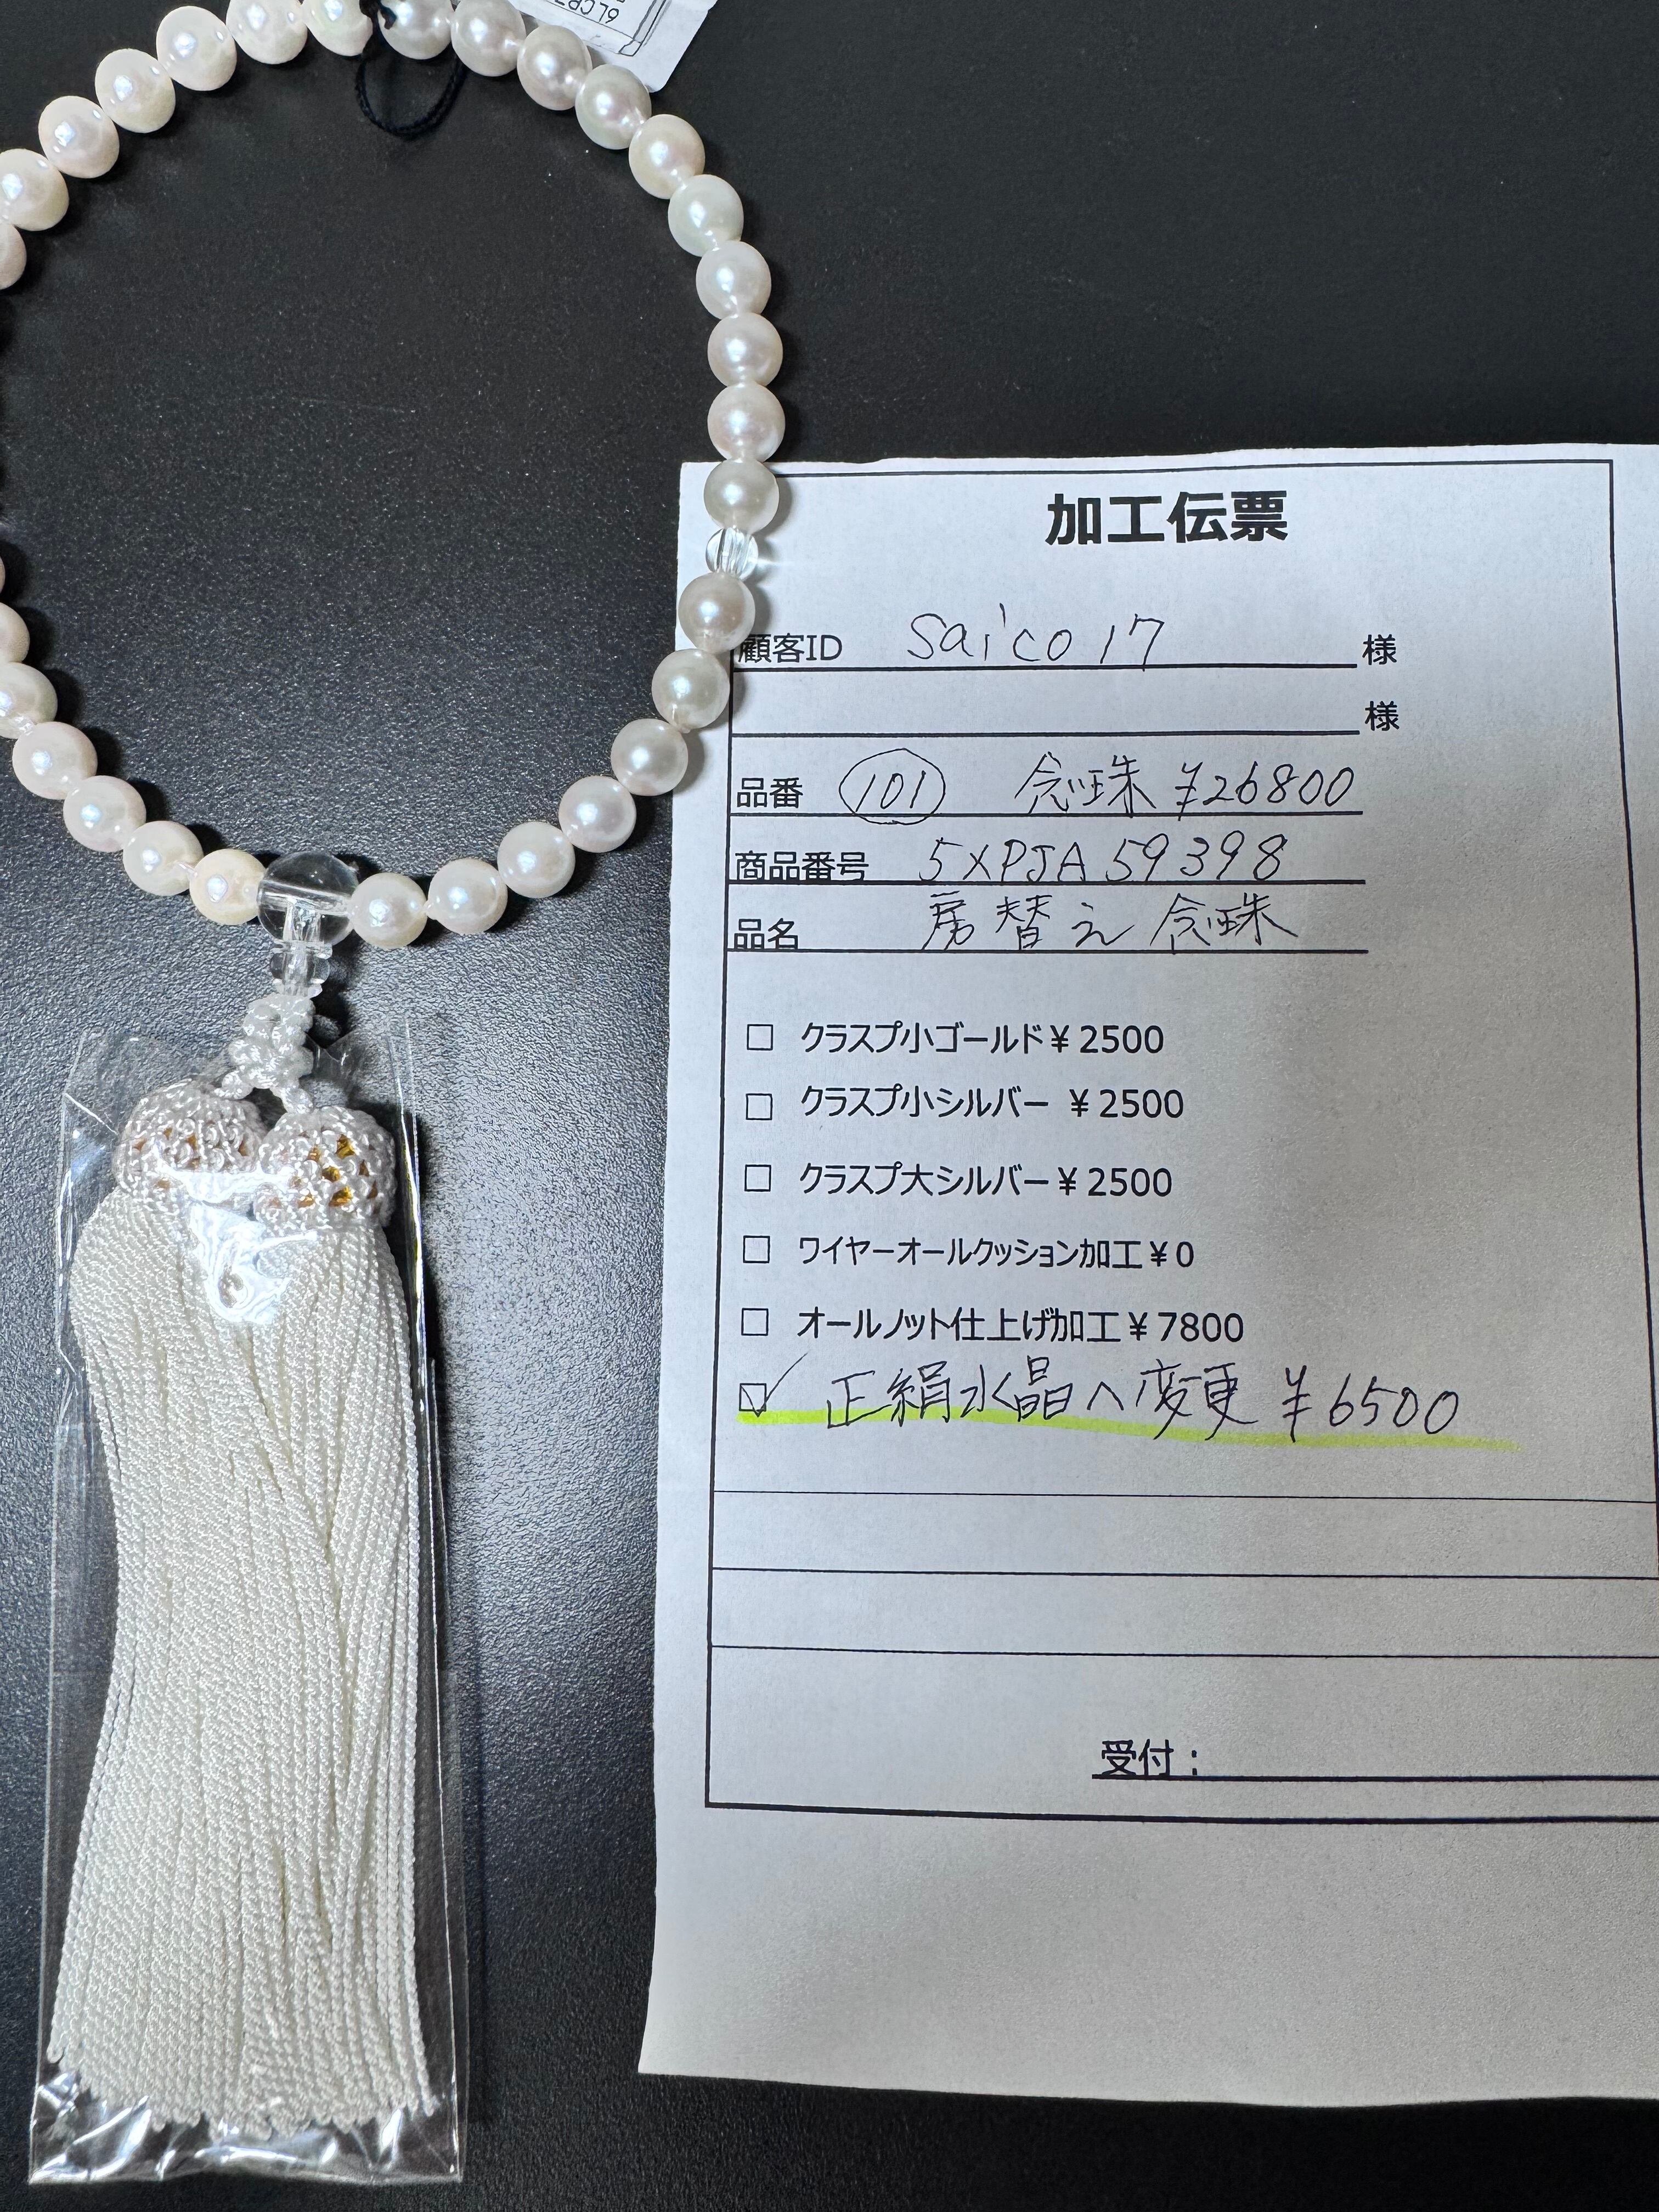 6LCP7
加工伝票
顧客ID saico17 様
様
品番 101 念珠 ¥26800
商品番号 5XPJA59398
品名 房替え念珠
□ クラスプ小ゴールド¥2500
□ クラスプ小シルバー ¥2500
□ クラスプ大シルバー¥2500
□ ワイヤーオールクッション加工¥0
□ オールノット仕上げ加工¥7800
☑ 正絹水晶へ変更 ¥6500
受付：